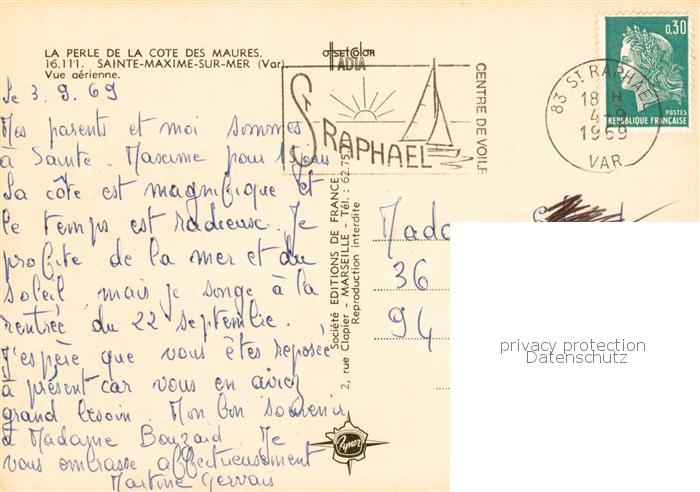 LA PERLE DE LA COTE DES MAURES.
16.111. SAINTE-MAXIME-SUR-MER (Var).
Vue aérienne.
Le 3.9.69
Mes parents et moi sommes
à Sainte-Maxime pour
La côte est magnifique et
le temps est radieux. Je
profite de la mer et du
soleil mais je songe à la
rentrée du 22 septembre.
J'espère que vous êtes reposée
à présent car vous en aviez
grand besoin. Mon bon souvenir
à Madame Bouzaid. Je
vous embrasse affectueusement
Martine Gervais
OffsetColor
ST RAPHAEL
CENTRE DE VOILE
83 ST RAPHAEL
18 H
4-9
1969
VAR
0,30
POSTES
REPUBLIQUE FRANÇAISE
Société EDITIONS DE FRANCE
2, rue Clapier - MARSEILLE - Tél. : 62.75.
Reproduction interdite
Mada
36
94
privacy protection
Datenschutz